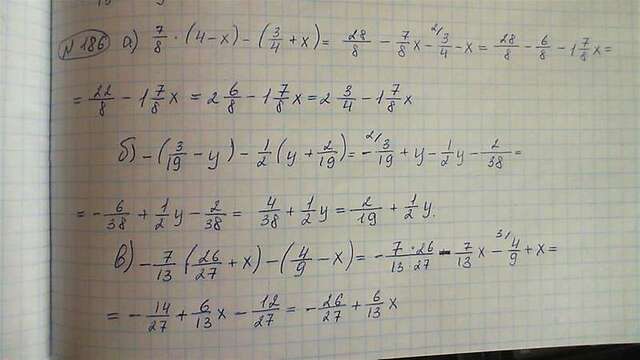 № 186 а) 7/8 · (4 - x) - (3/4 + x) = 28/8 - 7/8 x - 2/ 3/4 - x = 28/8 - 6/8 - 1 7/8 x =
= 22/8 - 1 7/8 x = 2 6/8 - 1 7/8 x = 2 3/4 - 1 7/8 x
б) - (3/19 - y) - 1/2 (y + 2/19) = - 2/ 3/19 + y - 1/2 y - 2/38 =
= - 6/38 + 1/2 y - 2/38 = 4/38 + 1/2 y = 2/19 + 1/2 y.
в) - 7/13 (26/27 + x) - (4/9 - x) = - 7·26/13·27 - 7/13 x - 3/ 4/9 + x =
= - 14/27 + 6/13 x - 12/27 = - 26/27 + 6/13 x